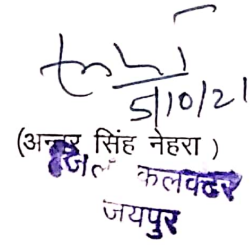 5/10/21
(अन्तर सिंह नेहरा )
जिला कलक्टर
जयपुर